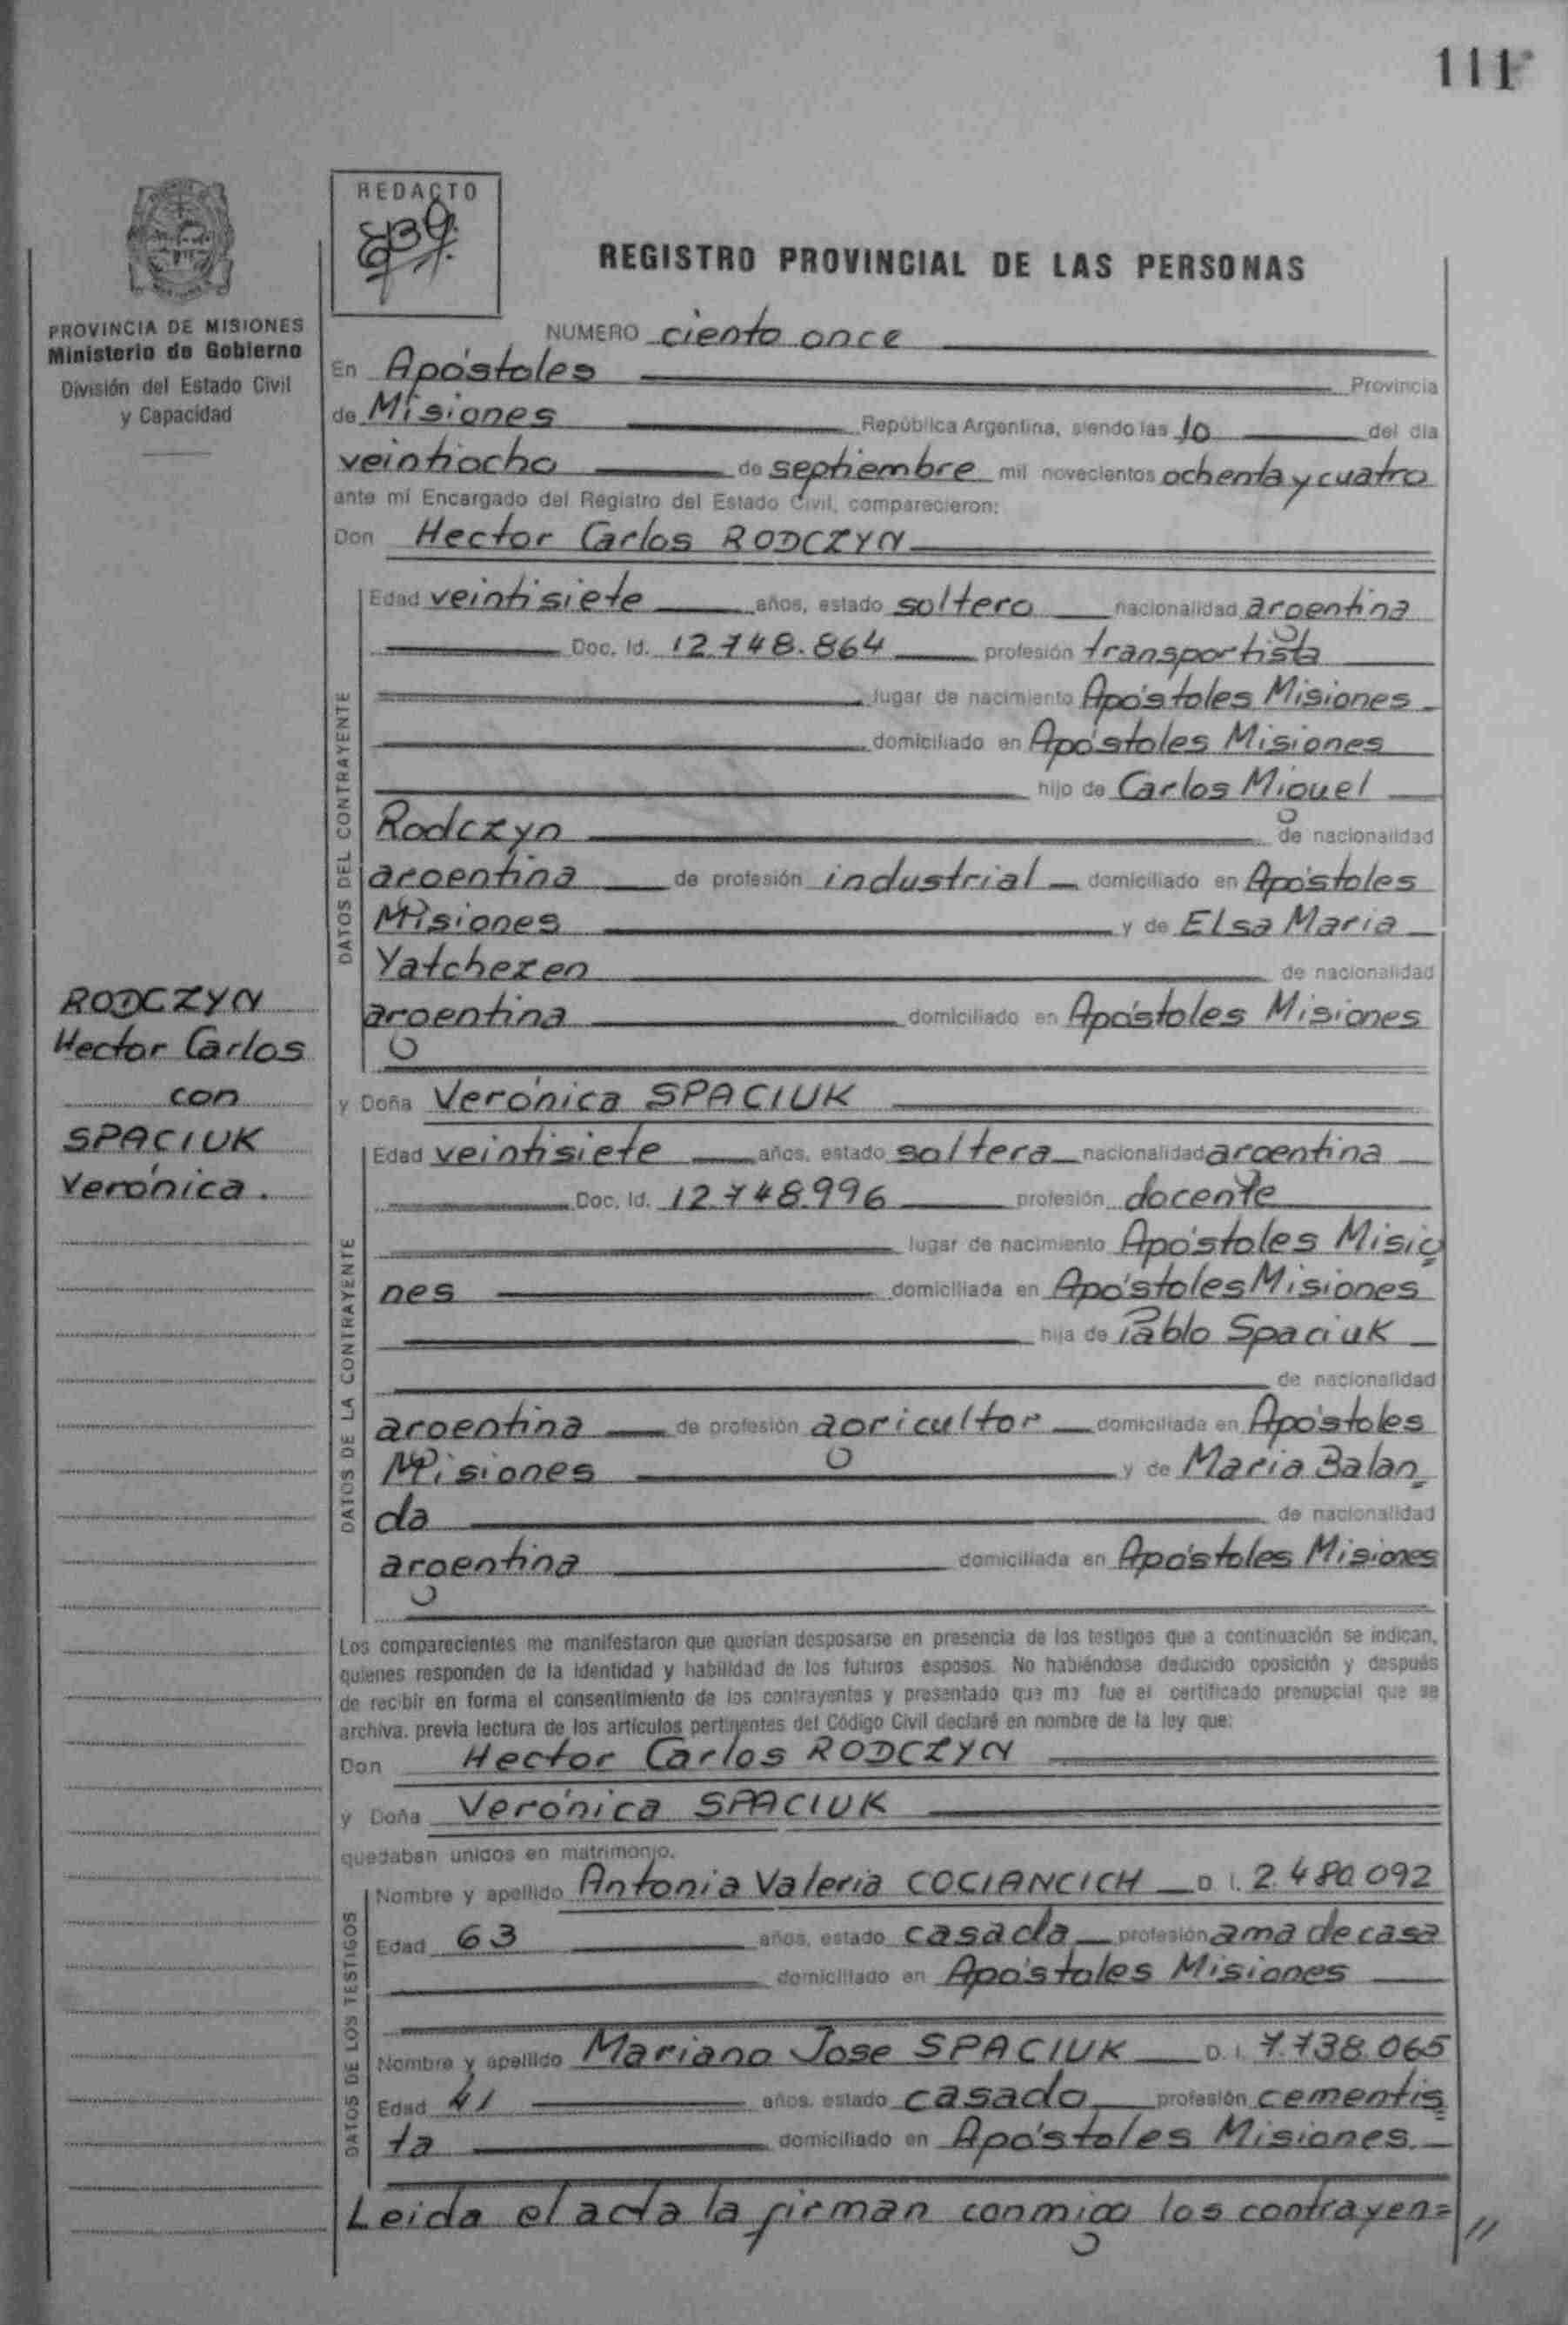 111
REDACTO
PROVINCIA DE MISIONES
Ministerio de Gobierno
División del Estado Civil
y Capacidad
REGISTRO PROVINCIAL DE LAS PERSONAS
NUMERO ciento once
En Apóstoles Provincia
de Misiones República Argentina, siendo las 10 del día
veintiocho de septiembre mil novecientos ochenta y cuatro
ante mí Encargado del Registro del Estado Civil, comparecieron:
Don Hector Carlos RODCZYN
DATOS DEL CONTRAYENTE
Edad veintisiete años, estado soltero nacionalidad argentina
Doc. Id. 12.748.864 profesión transportista
lugar de nacimiento Apóstoles Misiones
domiciliado en Apóstoles Misiones
hijo de Carlos Miguel
Rodczyn de nacionalidad
argentina de profesión industrial domiciliado en Apóstoles
Misiones y de Elsa Maria
Yatchezen de nacionalidad
argentina domiciliado en Apóstoles Misiones
RODCZYN
Hector Carlos
con
SPACIUK
Verónica.
y Doña Verónica SPACIUK
DATOS DE LA CONTRAYENTE
Edad veintisiete años, estado soltera nacionalidad argentina
Doc. Id. 12.748.996 profesión docente
lugar de nacimiento Apóstoles Misio
nes domiciliada en Apóstoles Misiones
hija de Pablo Spaciuk
de nacionalidad
argentina de profesión agricultor domiciliada en Apóstoles
Misiones y de Maria Balan
da de nacionalidad
argentina domiciliada en Apóstoles Misiones
Los comparecientes me manifestaron que querían desposarse en presencia de los testigos que a continuación se indican,
quienes responden de la identidad y habilidad de los futuros esposos. No habiéndose deducido oposición y después
de recibir en forma el consentimiento de los contrayentes y presentado que me fue el certificado prenupcial que se
archiva. previa lectura de los artículos pertinentes del Código Civil declaré en nombre de la ley que:
Don Hector Carlos RODCZYN
y Doña Verónica SPACIUK
quedaban unidos en matrimonio.
DATOS DE LOS TESTIGOS
Nombre y apellido Antonia Valeria COCIANCICH D. I. 2.480.092
Edad 63 años, estado casada profesión ama de casa
domiciliado en Apóstoles Misiones
Nombre y apellido Mariano Jose SPACIUK D. I. 7.738.065
Edad 41 años, estado casado profesión cementis
ta domiciliado en Apóstoles Misiones.
Leida el acta la firman conmigo los contrayen= //